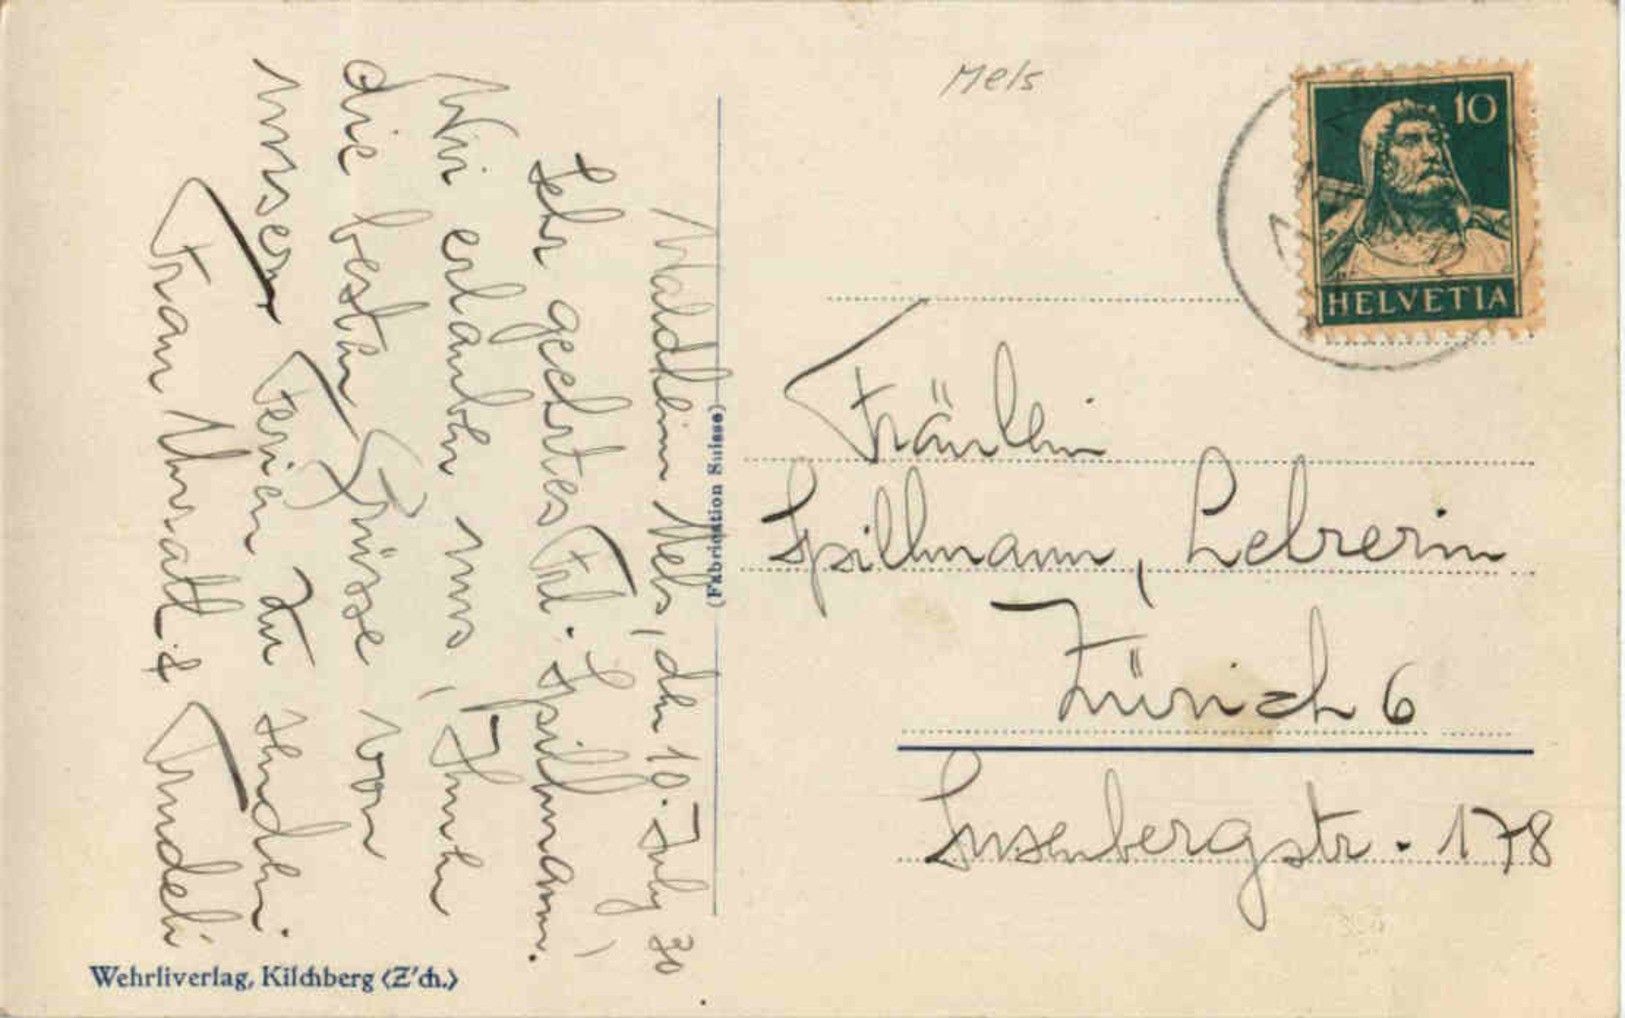 Waldheim Mels, den 10. July 30
Sehr geehrtes Frl. Spillmann!
Wir erlauben uns, Ihnen
die besten Grüsse von
unsern Ferien zu senden.
Frau Unrath & Trudeli
Wehrliverlag, Kilchberg (Z'ch.)
(Fabrication Suisse)
Mels
10
HELVETIA
Fräulein
Spillmann, Lehrerin
Zürich 6
Susenbergstr. 178